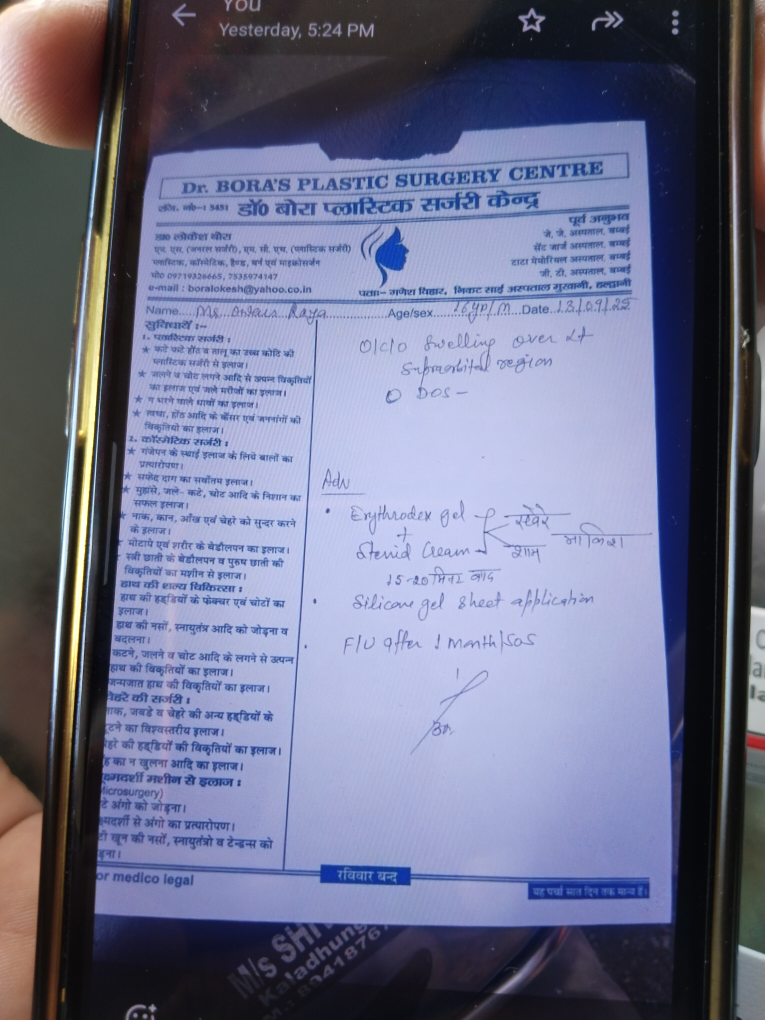 You
Yesterday, 5:24 PM
Dr. BORA'S PLASTIC SURGERY CENTRE
डॉ0 बोरा प्लास्टिक सर्जरी केन्द्र
डा0 लोकेश बोरा
एम. एस. (जनरल सर्जरी), एम. सी. एच. (प्लास्टिक सर्जरी)
प्लास्टिक, कॉस्मेटिक, हैण्ड, बर्न एवं माइक्रोसर्जन
मो0 09719326665, 7535974147
e-mail : boralokesh@yahoo.co.in
पूर्व अनुभव
जे. जे. अस्पताल, बम्बई
सेंट जार्ज अस्पताल, बम्बई
टाटा मेमोरियल अस्पताल, बम्बई
जी. टी. अस्पताल, बम्बई
पताः- गणेश विहार, निकट साई अस्पताल मुखानी, हल्द्वानी
Name Raya Age/sex 16yr/M Date 13/09/25
सुविधायें :-
1. प्लास्टिक सर्जरी :
★ कटे फटे होंठ व तालू का उच्च कोटि की
प्लास्टिक सर्जरी से इलाज।
★ जलने व चोट लगने आदि से उत्पन्न विकृतियों
का इलाज एवं जले मरीजों का इलाज।
★ न भरने वाले घावों का इलाज।
★ त्वचा, होंठ आदि के कैंसर एवं जननांगों की
विकृतियो का इलाज।
2. कॉस्मेटिक सर्जरी :
★ गंजेपन के स्थाई इलाज के लिये बालों का
प्रत्यारोपण।
★ सफेद दाग का सर्वोत्तम इलाज।
★ मुहांसे, जले- कटे, चोट आदि के निशान का
सफल इलाज।
★ नाक, कान, आँख एवं चेहरे को सुन्दर करने
के इलाज।
★ मोटापे एवं शरीर के बेडौलपन का इलाज।
★ स्त्री छाती के बेडौलपन व पुरुष छाती की
विकृतियों का मशीन से इलाज।
हाथ की शल्य चिकित्सा :
हाथ की हड्डियों के फ्रेक्चर एवं चोटों का
इलाज।
हाथ की नसों, स्नायुतंत्र आदि को जोड़ना व
बदलना।
कटने, जलने व चोट आदि के लगने से उत्पन्न
हाथ की विकृतियों का इलाज।
जन्मजात हाथ की विकृतियों का इलाज।
चेहरे की सर्जरी :
नाक, जबड़े व चेहरे की अन्य हड्डियों के
टूटने का विश्वस्तरीय इलाज।
चेहरे की हड्डियों की विकृतियों का इलाज।
मुंह का न खुलना आदि का इलाज।
सूक्ष्मदर्शी मशीन से इलाज :
Microsurgery)
कटे अंगो को जोड़ना।
सूक्ष्मदर्शी से अंगो का प्रत्यारोपण।
टी खून की नसों, स्नायुतंत्रो व टेन्डन्स को
ड़ना।
O/c/o Swelling over Lt
Supraorbital region
DOS -
Adv
• Erythrodex gel
+
Steroid Cream
सवेरे
शाम
मालिश
15-20 मिनट बाद
• Silicone gel sheet application
• F/U after 1 Month/SOS
or medico legal
रविवार बन्द
यह पर्चा सात दिन तक मान्य है।
M/s SHI
Kaladhung